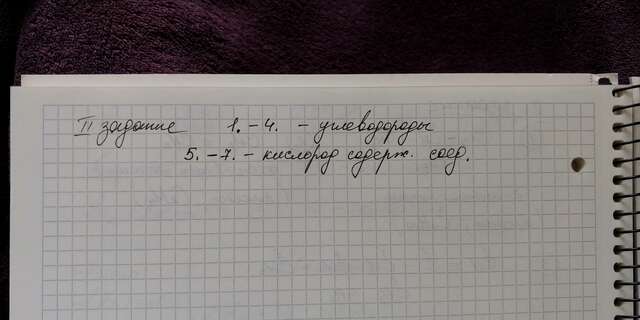 II задание 1. – 4. – углеводороды
5. – 7. – кислород содерж. соед.